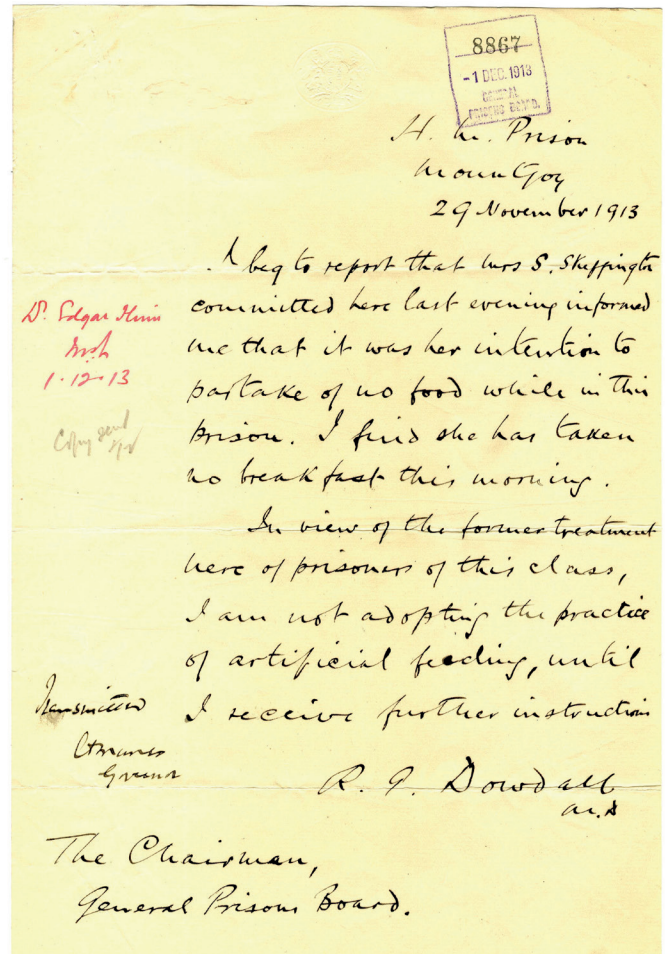 8867
-1 DEC. 1913
GENERAL
PRISONS BOARD.
H. M. Prison
Mountjoy
29 November 1913
I beg to report that Mrs S. Skeffington
committed here last evening informed
me that it was her intention to
partake of no food while in this
prison. I find she has taken
no breakfast this morning.
In view of the former treatment
here of prisoners of this class,
I am not adopting the practice
of artificial feeding, until
I receive further instructions
R. G. Dowdall
M.D
Dr. Edgar Flinn
1.12.13
Copy
Transmitted
Governor
The Chairman,
General Prisons Board.